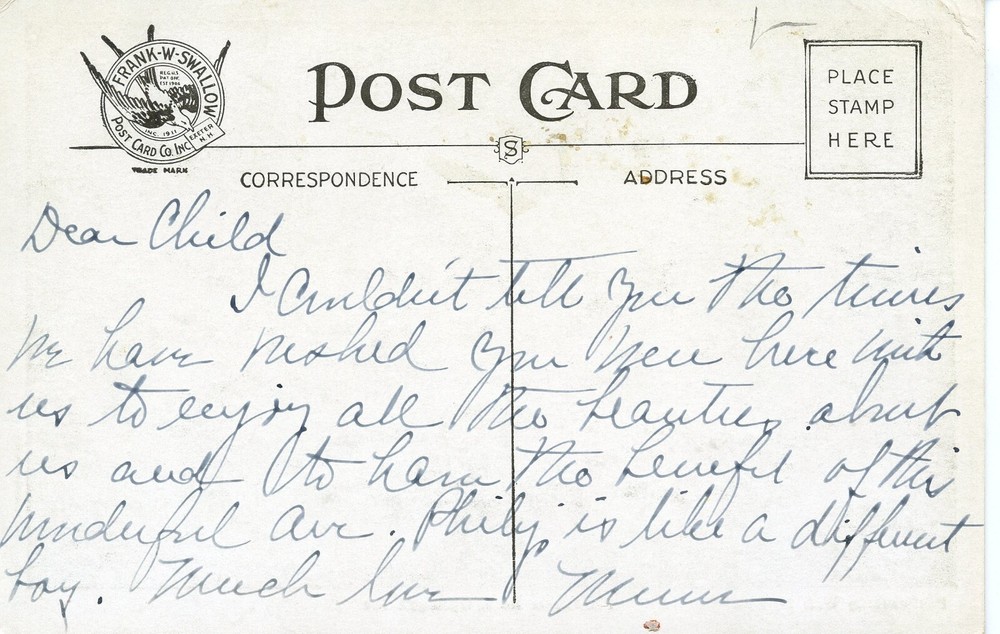 FRANK-W-SWALLOW
REG.US
PAT.OFF.
EST 1904
INC. 1911
POST CARD CO. INC
EXETER
N.H.
TRADE MARK
POST CARD
PLACE
STAMP
HERE
S
CORRESPONDENCE
ADDRESS
Dear Child
I couldn't tell you the times
we have wished you were here with
us to enjoy all the beauties about
us and to have the benefit of this
wonderful air. Philip is like a different
boy. Much love